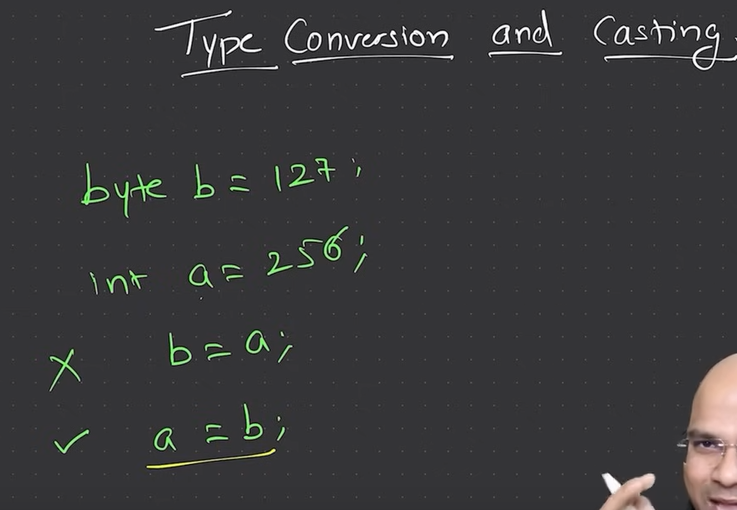 Type Conversion and Casting
byte b = 127;
int a = 256;
X b = a;
✓ a = b;